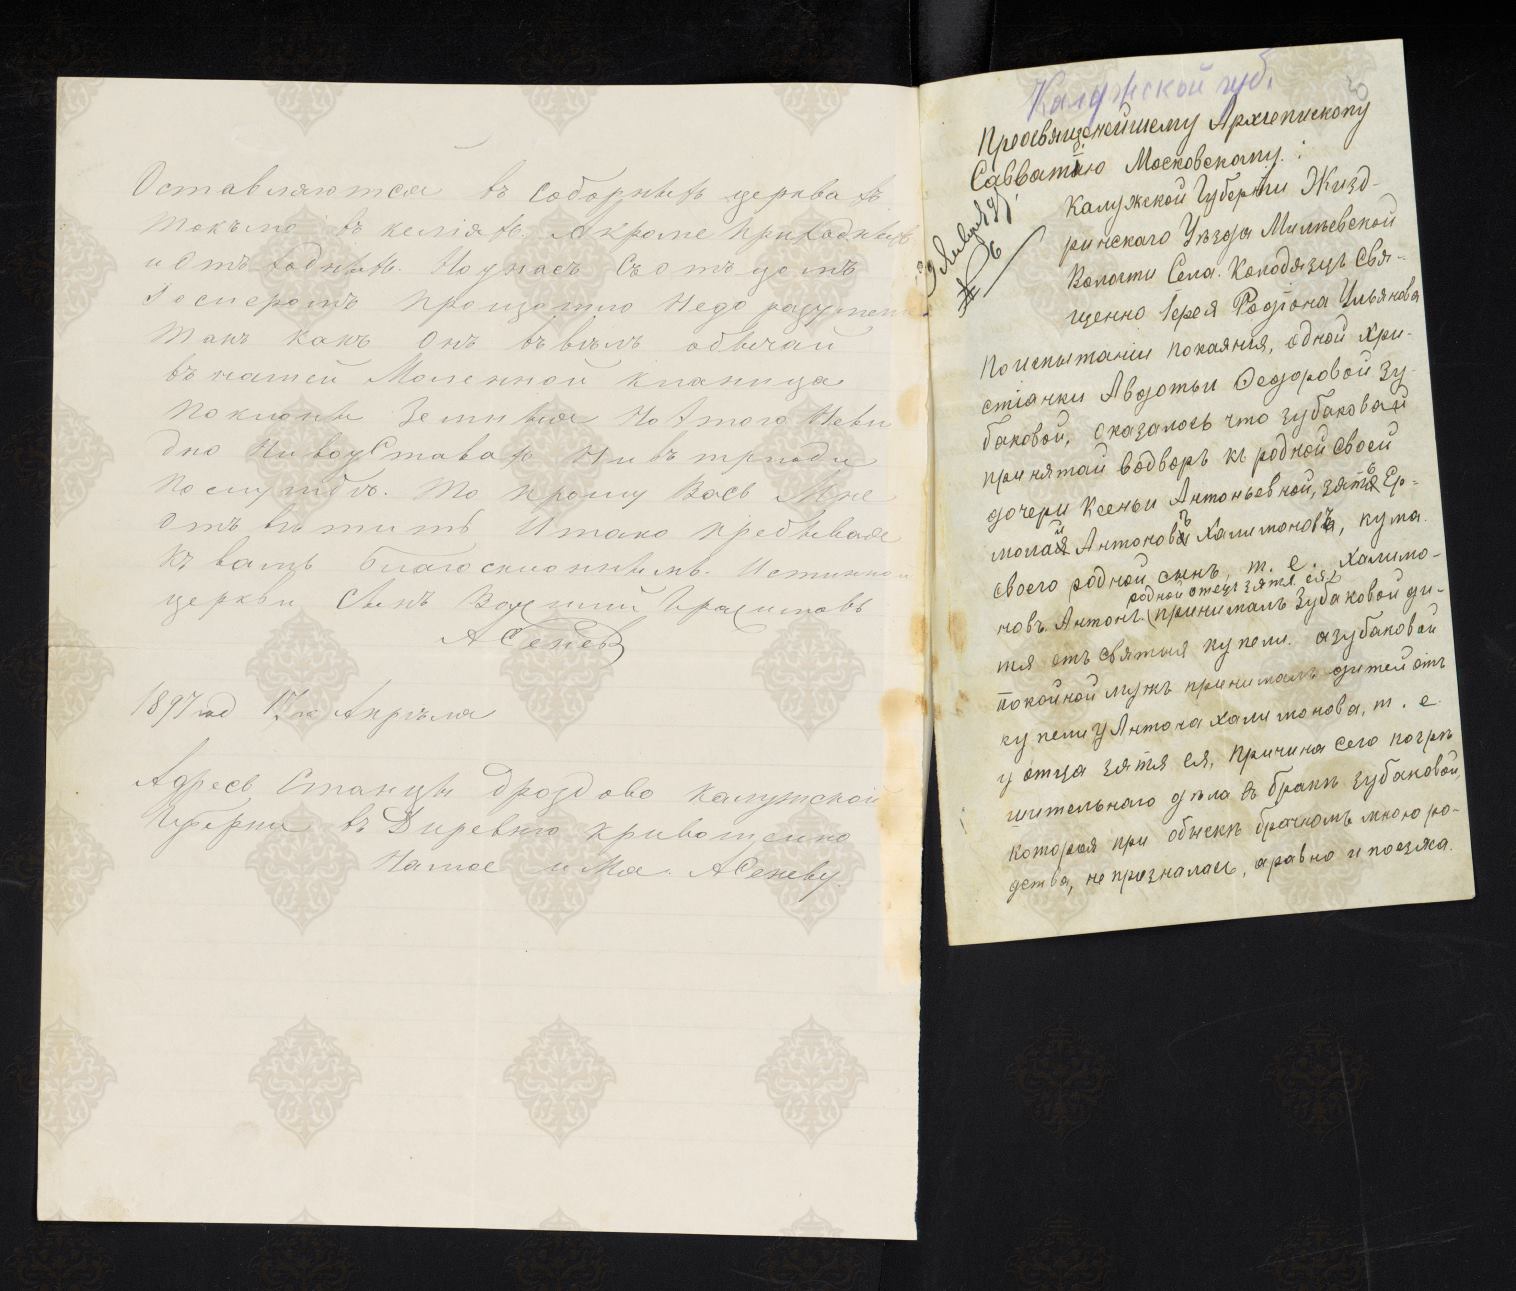 Оставляются въ соборныхъ церквахъ
токъмо въ келіяхъ. Акроме приходныхъ
и отъ ходныхъ. Но унасъ Съ отъ цомъ
произошло недо разумен
такъ какъ онъ въвелъ обычай
въ нашей Моленной кланица
Поклоны Земныя Но Этого Неви
дно Ни воуставах Ни въ триоди
Послужбъ. То прошу Васъ Мне
отъ ветить Итако пребываю
къ вамъ благосклоннымъ. Истинной
церкви Сынъ
АСеневъ
1897 год 17го Апреля
Адресъ Станцы Дроздово калужской
Губерни въ Диревню кривошеино
на мое имя. АСеневу.
Калужской губ.
Преосвященнейшему Архиепископу
Савватію Московскому.
Калужской Губерніи Жизд-
ринскаго Уезда Милеевской
Волости Села. Колодязцъ Свя-
щенно Іерея Родіона Ульянова
По испытаніи покаянія, одной хри-
стіанки Авдотьи Ѳеодоровой Зу-
баковой, оказалось что зубаковай
принятай вдворъ къ родной своей
дочери Ксеньи Антоньевной, зять Ер-
молай Антоновъ Халимоновъ, кума
своего родной сынъ, т. е. халимо-
родной отецъ зятя ея
новъ. Антонъ. (принималъ Зубаковой ди-
тя отъ святыя купели. азубаковой
покойной мужъ принималъ дитей отъ
купели у Антона халимонова, т. е.
у отца зятя ея, причина сего погре
шительнаго дела въ браке зубаковой,
которая при обыске брачномъ мною ро-
дства, не призналась, аравно и поезжа.